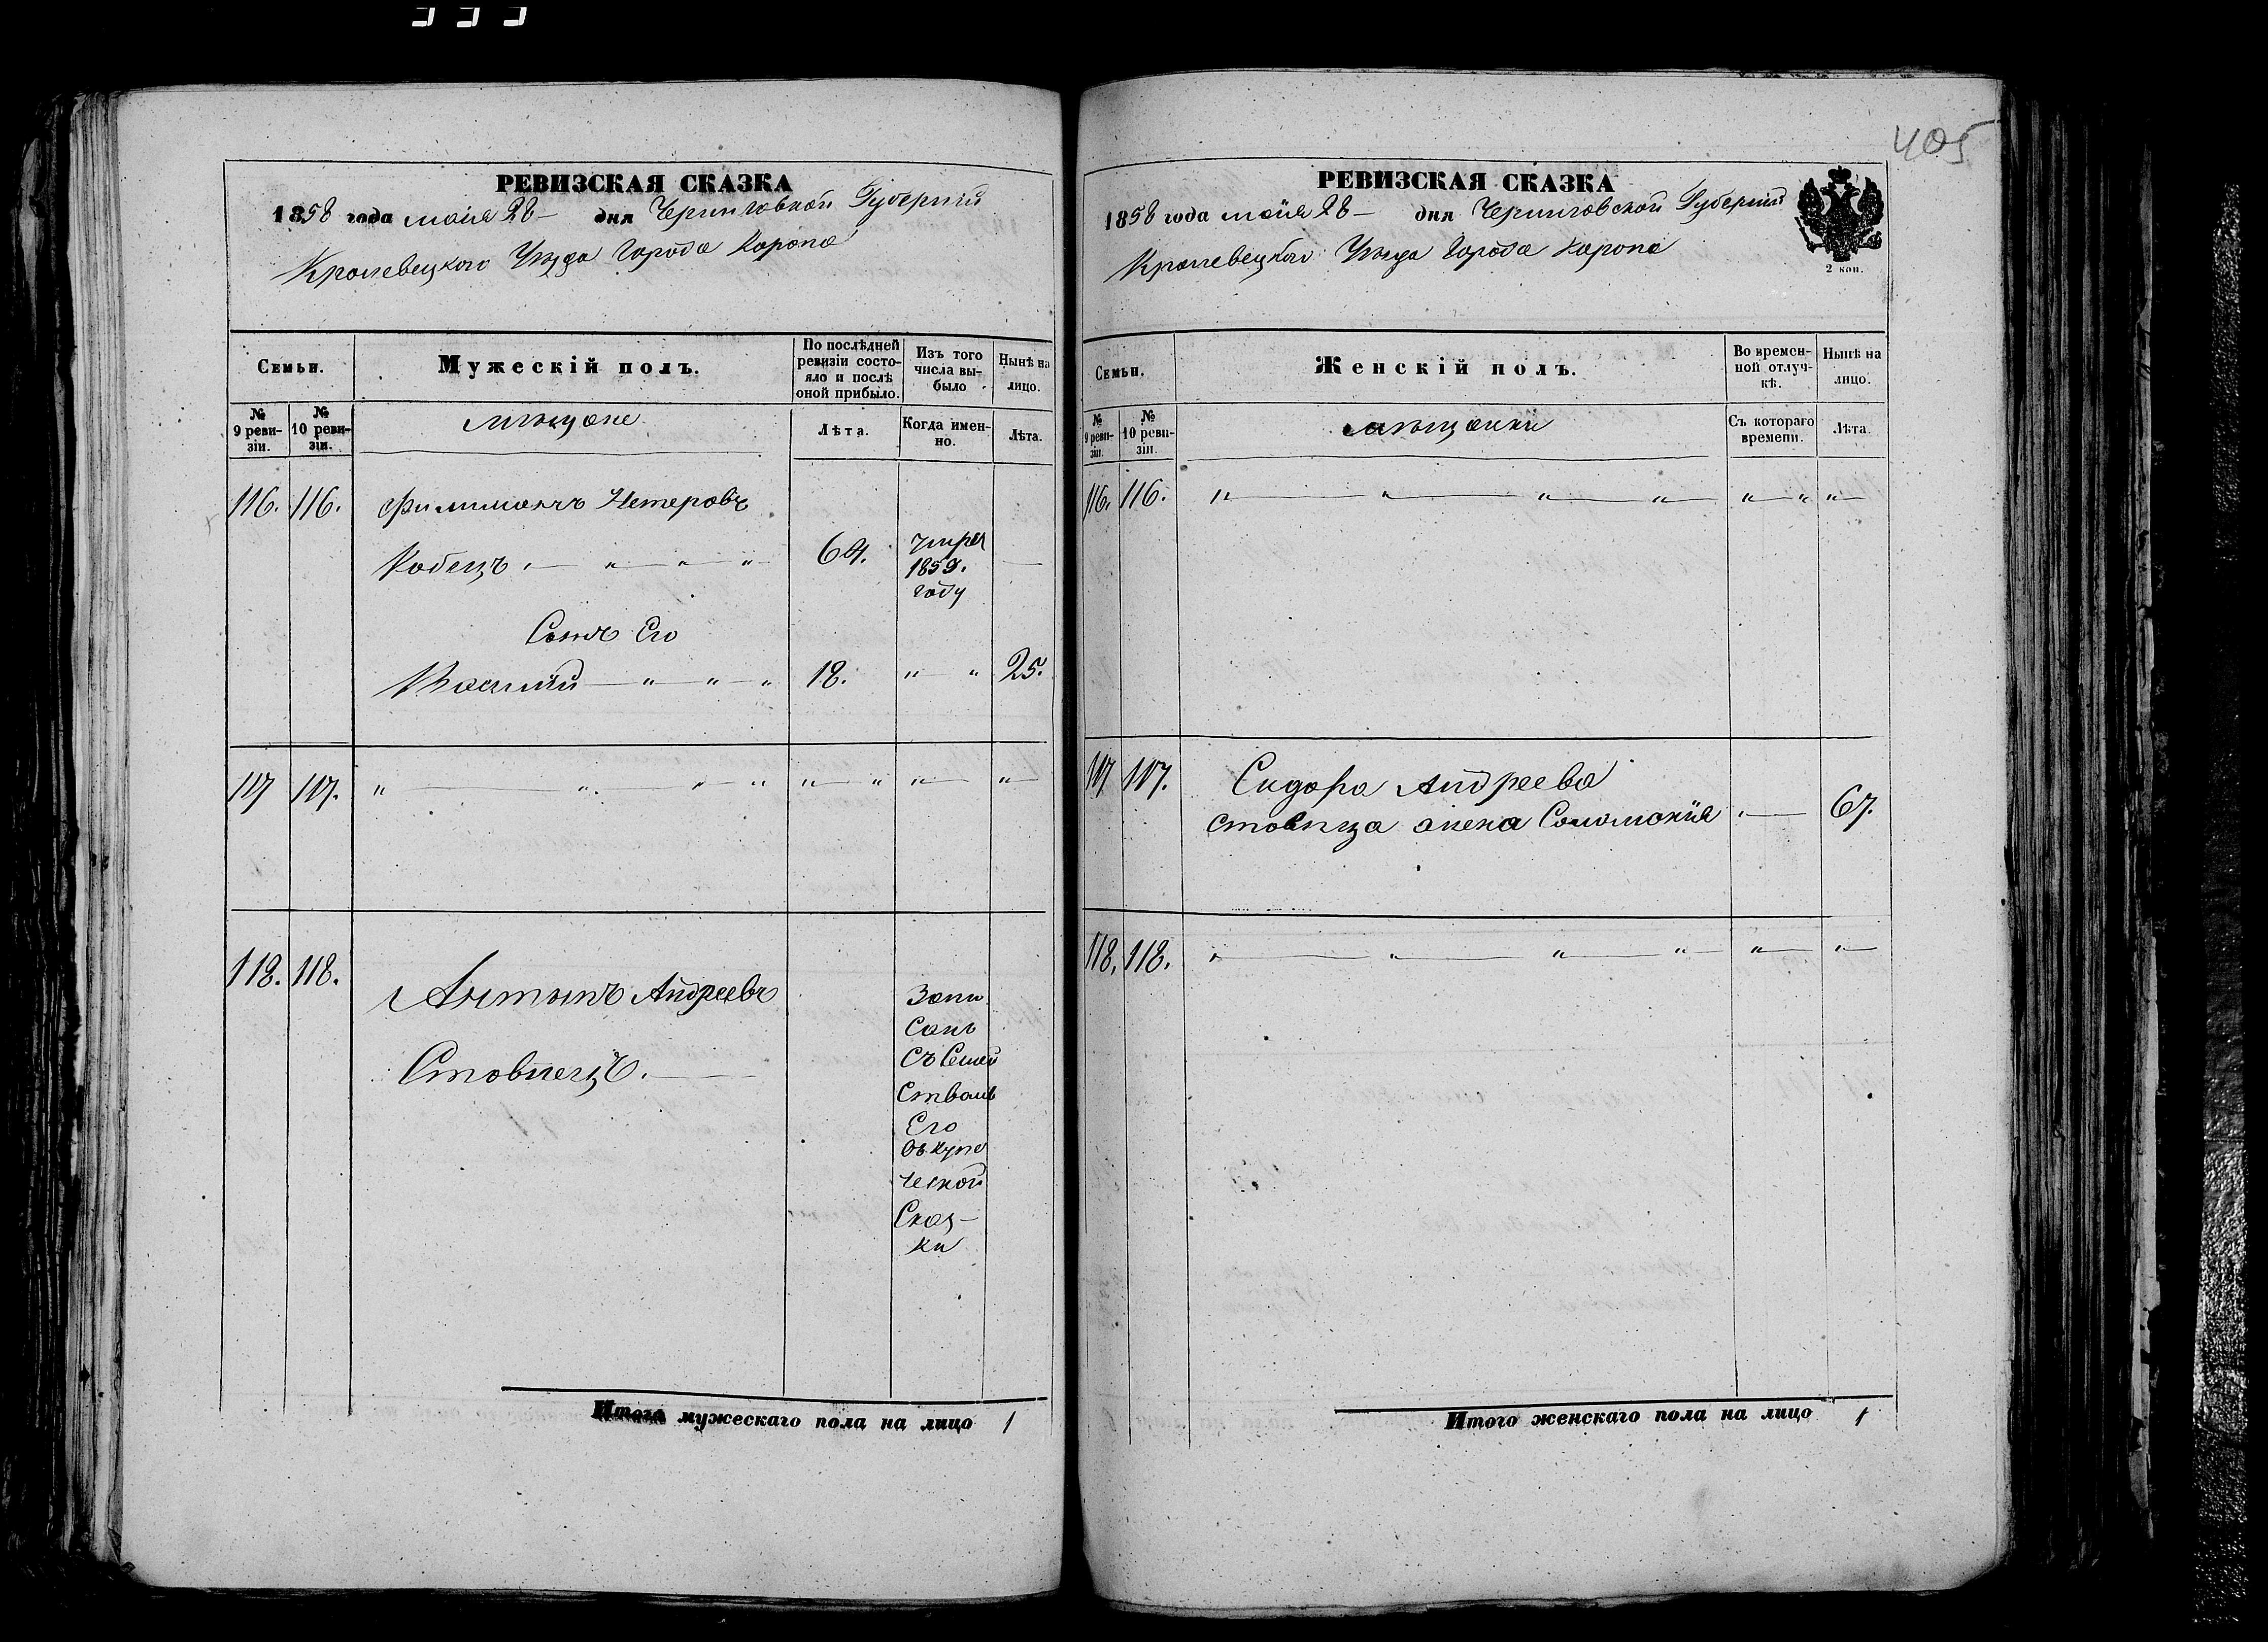 405
РЕВИЗСКАЯ СКАЗКА
1858 года маія 28 — дня Черниговской Губерніи
Кролевецкого Уѣзда Города Коропа
Семьи.
Мужескій полъ.
По послѣдней ревизіи состояло и послѣ оной прибыло.
Изъ того числа выбыло
Ныңѣ на лицо.
№ 9 ревизіи.
№ 10 ревизіи.
мѣщане
Лѣта.
Когда именно.
Лѣта.
116. 116. Филимонъ Нестеровъ
Кобецъ 64. умре 1853. году
Сынъ Его
Василій 18. " " 25.
117 117. " " " " " " " "
118. 118. Антонъ Андреевъ
Стовпецъ.
Запи
санъ
съ Семей
ствомъ
Его
въ купе
ческой
Сказ-
ки
Итого мужескаго пола на лицо 1
РЕВИЗСКАЯ СКАЗКА
1858 года маія 28 — дня Черниговской Губерніи
Кролевецкого Уѣзда Города Коропа
2 коп.
Семьи.
Женскій полъ.
Во временной отлучкѣ.
Нынѣ на лицо.
№ 9 ревизіи.
№ 10 ревизіи.
мѣщанки
Съ котораго времени.
Лѣта.
116. 116. " " " " " " "
117 117. Сидора Андреева
Стовпца жена Соломонія 67.
118. 118. " " " " " "
Итого женскаго пола на лицо 1